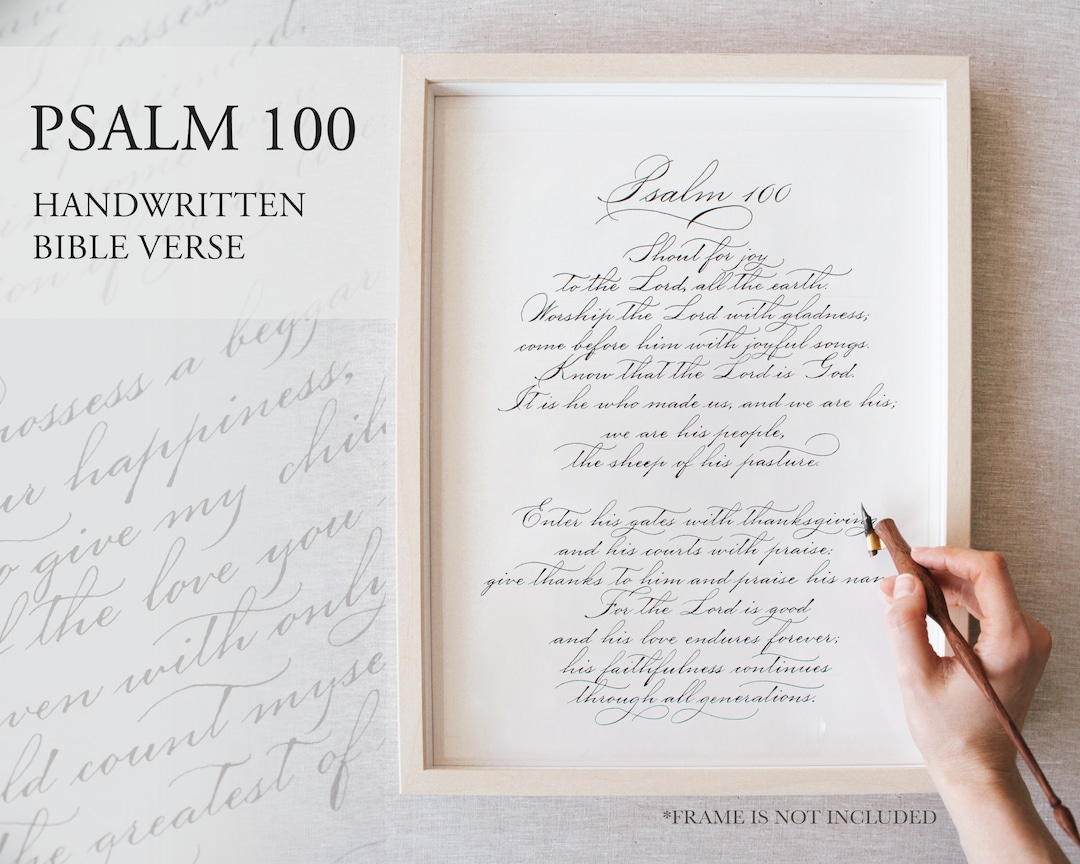 PSALM 100
HANDWRITTEN
BIBLE VERSE
Psalm 100
Shout for joy
to the Lord, all the earth.
Worship the Lord with gladness;
come before him with joyful songs.
Know that the Lord is God.
It is he who made us, and we are his;
we are his people,
the sheep of his pasture.
Enter his gates with thanksgiving
and his courts with praise;
give thanks to him and praise his nam
For the Lord is good
and his love endures forever;
his faithfulness continues
through all generations.
*FRAME IS NOT INCLUDED
possess a beggar
happiness,
give my chil
the love you
with only
count myse
the greatest of